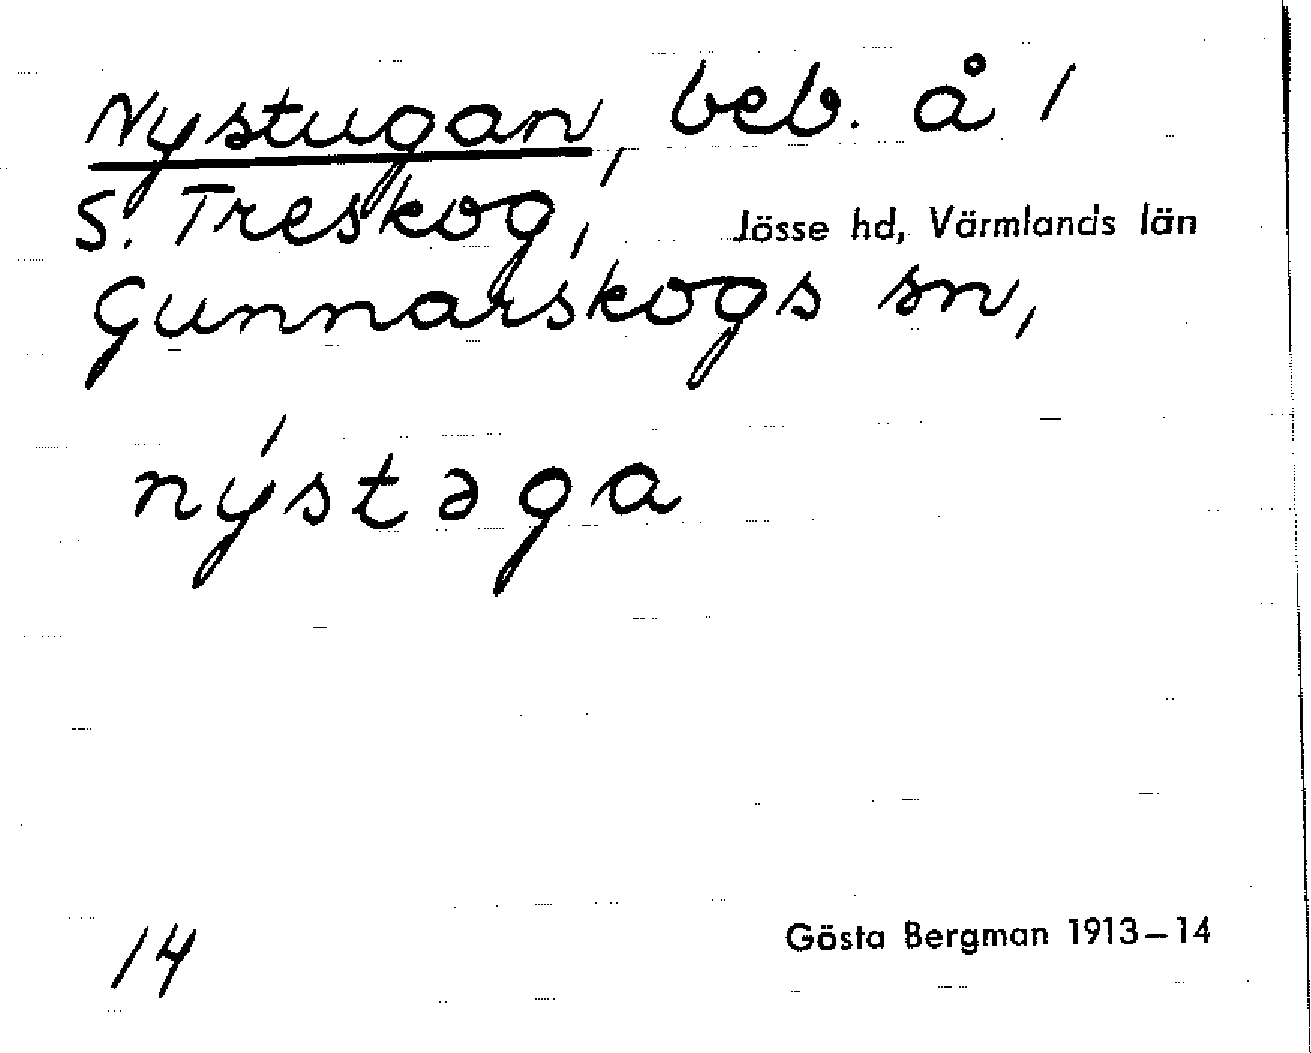 Nystugan, beb. å 1/
S. Treskog, Jösse hd, Värmlands län
Gunnarskogs sn,
nýstəga
14
Gösta Bergman 1913–14